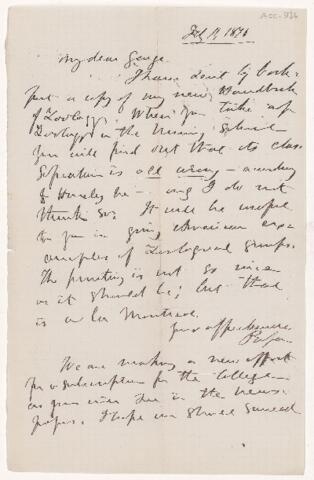 Feby 12 1876
My dear George.
I have sent by book
post a copy of my new Handbook
of Zoology. When you take up
Zoology in the Morning School
you will find out that its class
ification is all wrong — according
to Huxley &c — and I do not
think so. It will be useful
to you in giving Canadian ex
amples of Zoological groups.
The printing is not so nice
as it should be; but that
is a la Montreal.
Your affectionate
We are making a new effort
for a subscription for the College
as you will see in the news
papers. I hope we should succeed